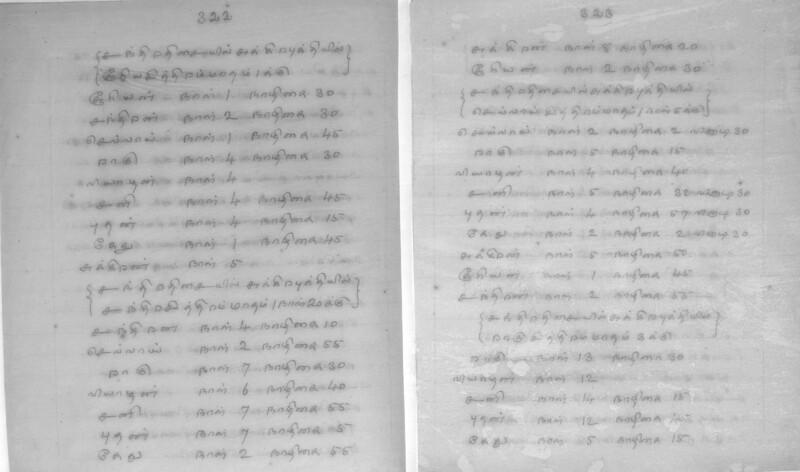 322
சந்திரதிசையில் சுக்கிரபுத்தியில்
சூரியசித்திரம் மாதம் 1க்கு
சூரியன் நாள் 1 நாழிகை 30
சந்திரன் நாள் 2 நாழிகை 30
செவ்வாய் நாள் 1 நாழிகை 45
ராகு நாள் 4 நாழிகை 30
வியாழன் நாள் 4
சனி நாள் 4 நாழிகை 45
புதன் நாள் 4 நாழிகை 15
கேது நாள் 1 நாழிகை 45
சுக்கிரன் நாள் 5
சந்திரதிசையில் சுக்கிரபுத்தியில்
சந்திரசித்திரம் மாதம் 1 நாள் 20க்கு
சந்திரன் நாள் 4 நாழிகை 10
செவ்வாய் நாள் 2 நாழிகை 55
ராகு நாள் 7 நாழிகை 30
வியாழன் நாள் 6 நாழிகை 40
சனி நாள் 7 நாழிகை 55
புதன் நாள் 7 நாழிகை 5
கேது நாள் 2 நாழிகை 55
323
சுக்கிரன் நாள் 8 நாழிகை 20
சூரியன் நாள் 2 நாழிகை 30
சந்திரதிசையில் சுக்கிரபுத்தியில்
செவ்வாய் சித்திரம் மாதம் 1 நாள் 5க்கு
செவ்வாய் நாள் 2 நாழிகை 2 வினாடி 30
ராகு நாள் 5 நாழிகை 15
வியாழன் நாள் 4 நாழிகை 40
சனி நாள் 5 நாழிகை 32 வினாடி 30
புதன் நாள் 4 நாழிகை 57 வினாடி 30
கேது நாள் 2 நாழிகை 2 வினாடி 30
சுக்கிரன் நாள் 5 நாழிகை 50
சூரியன் நாள் 1 நாழிகை 45
சந்திரன் நாள் 2 நாழிகை 55
சந்திரதிசையில் சுக்கிரபுத்தியில்
ராகு சித்திரம் மாதம் 3க்கு
ராகு நாள் 13 நாழிகை 30
வியாழன் நாள் 12
சனி நாள் 14 நாழிகை 15
புதன் நாள் 12 நாழிகை
கேது நாள் 5 நாழிகை 15